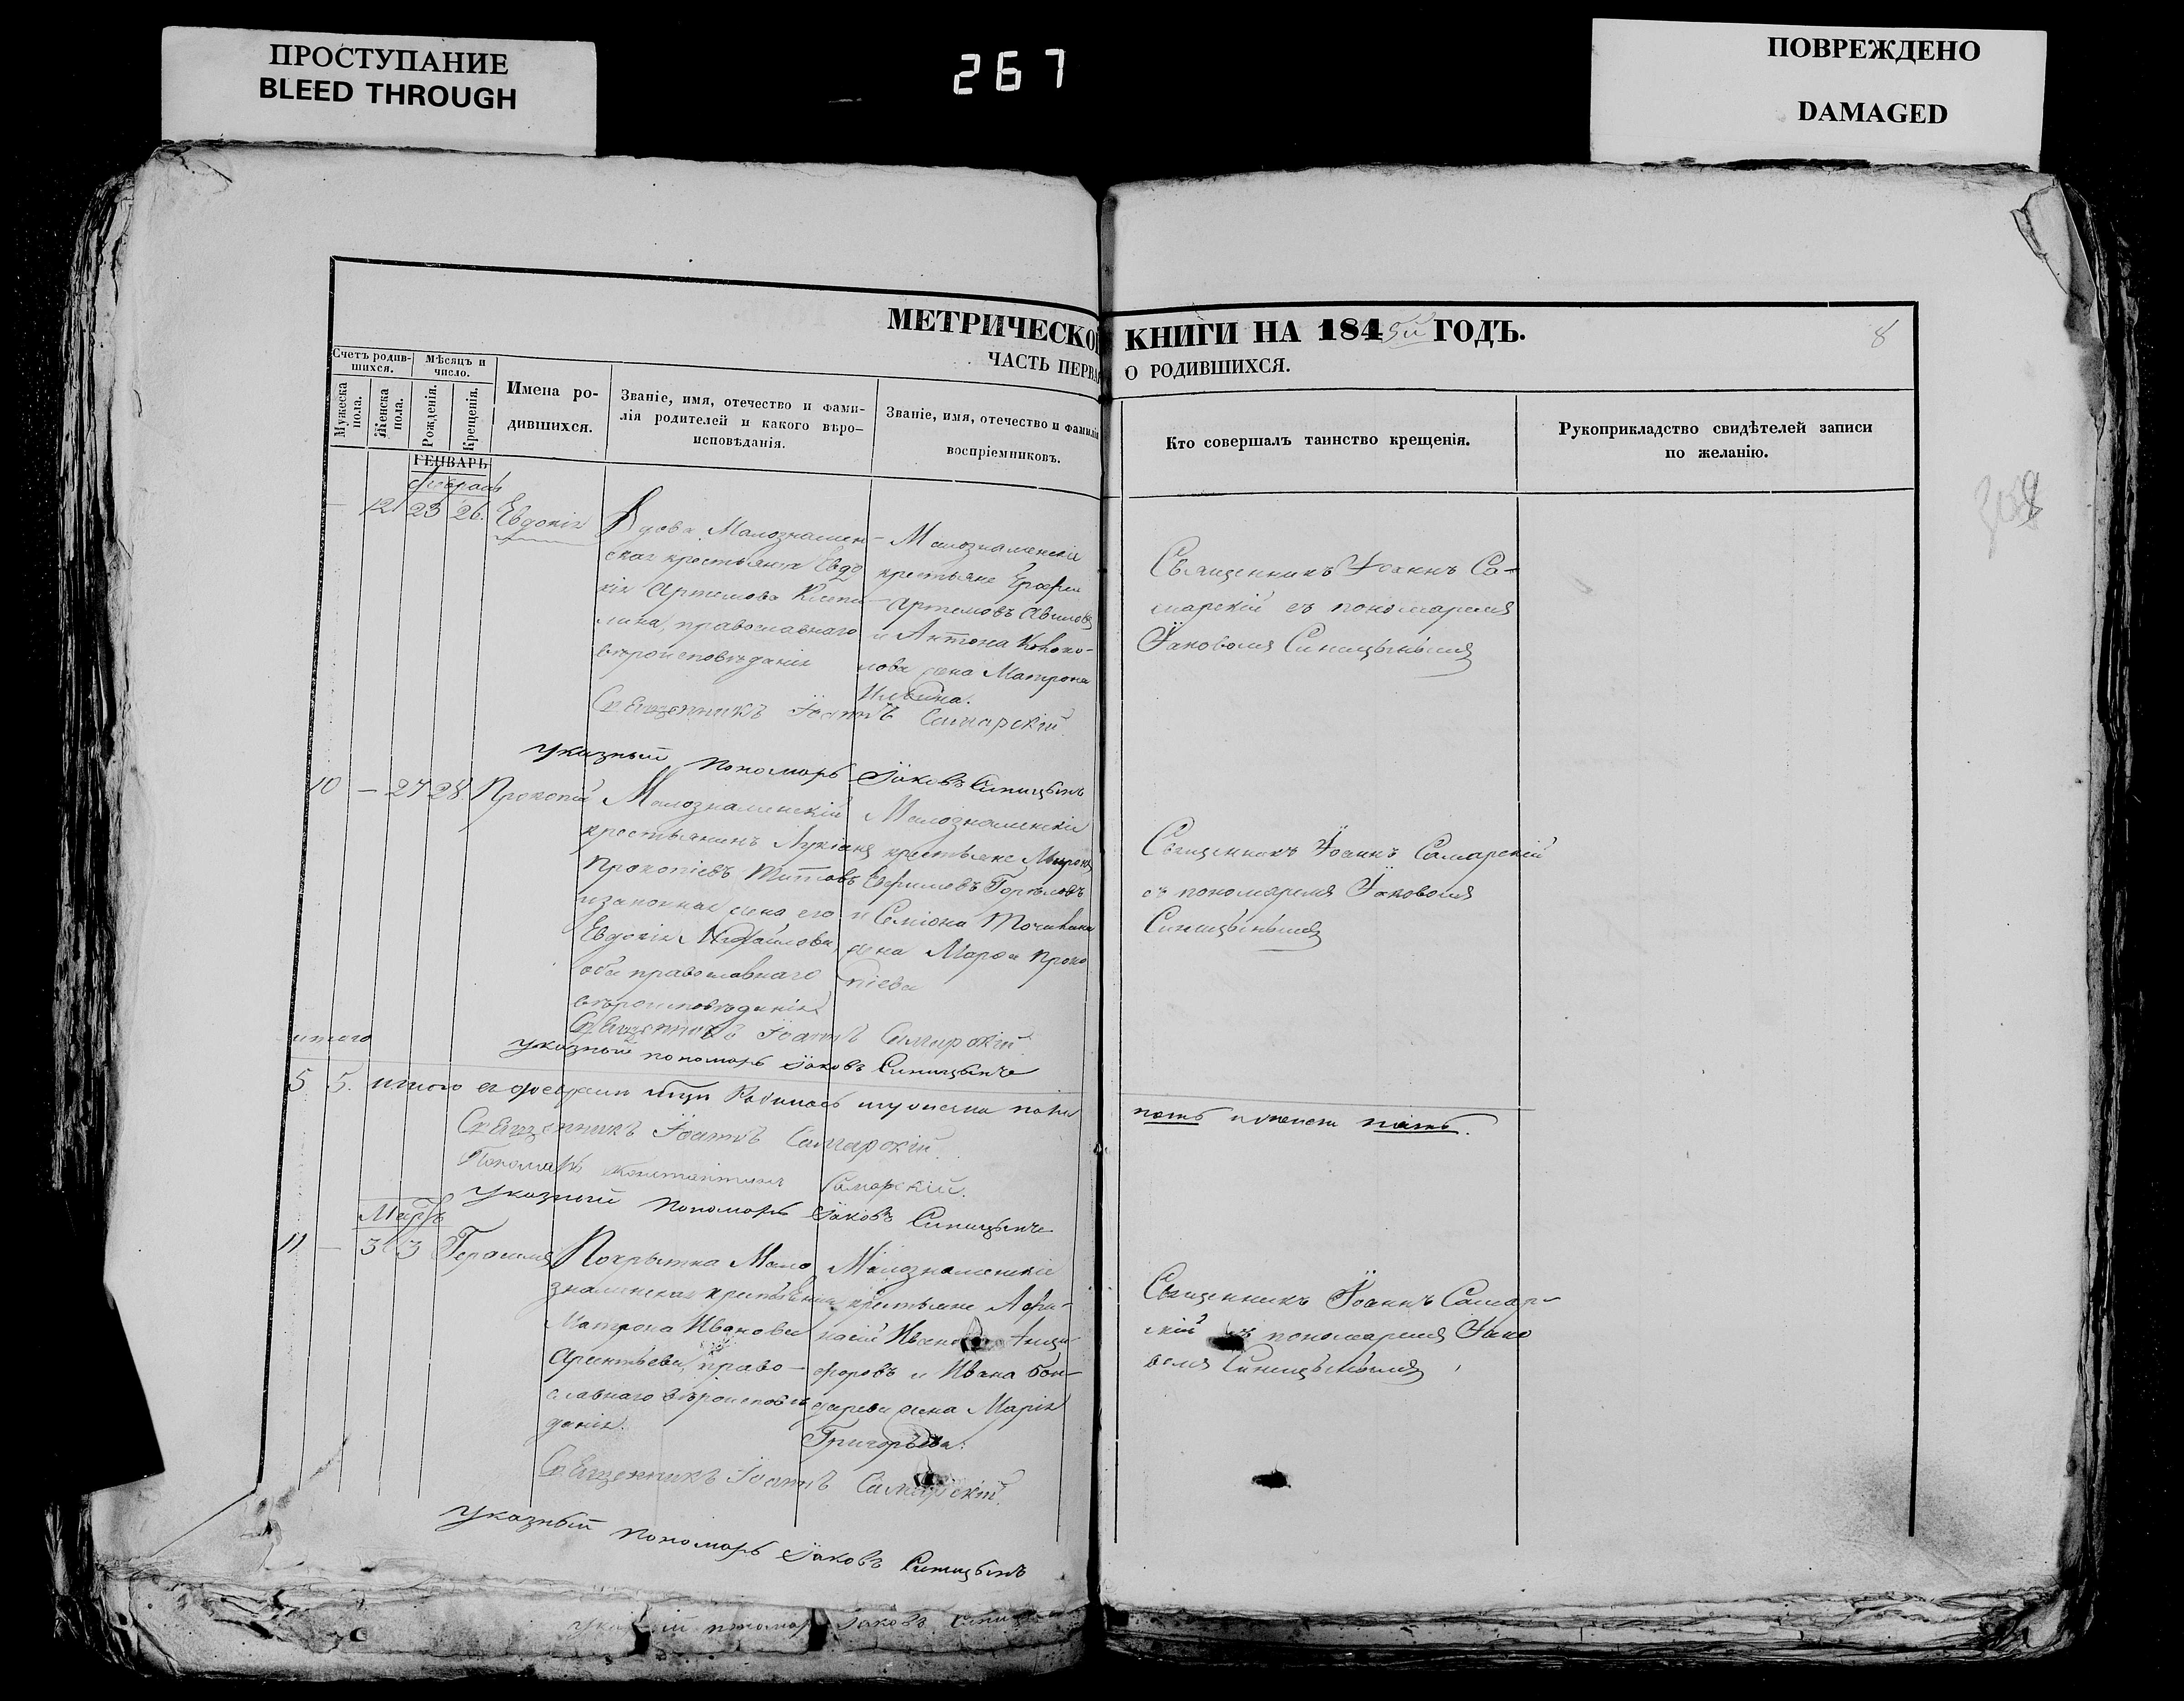 ПРОСТУПАНИЕ
BLEED THROUGH
267
ПОВРЕЖДЕНО
DAMAGED
МЕТРИЧЕСКОЙ КНИГИ НА 1845й ГОДЪ.
8
ЧАСТЬ ПЕРВА О РОДИВШИХСЯ.
Счетъ родив-
шихся.
Мужеска
пола.
Женска
пола.
Мѣсяцъ и
число.
Рожденія.
Крещенія.
Имена ро-
дившихся.
Званіе, имя, отечество и фами-
лія родителей и какого вѣро-
исповѣданія.
Званіе, имя, отечество и фамилія
воспріемниковъ.
Кто совершалъ таинство крещенія.
Рукоприкладство свидѣтелей записи
по желанію.
ГЕНВАРЬ
февраль
— 12 23 26. Евдокія
Вдова Малознамен-
ская крестьянка Евдо
кія Артемова
православнаго
вѣроисповѣданія
Малознаменскіе
крестьяне Ерофей
Артемовъ Авиловъ
и Антона
жена Матрона
Ильина.
Священникъ Іоаннъ Са-
марскій съ пономаремъ
Іаковомъ Синицынымъ
Священникъ Іоаннъ Самарскій
Указный пономарь Іаковъ Синицынъ
10 — 27 28 Прокопій
Малознаменскій
крестьянинъ Лукіанъ
Прокопіевъ Титовъ
и законная жена его
Евдокія Михайлова,
оба православнаго
вѣроисповѣданія
Малознаменскіе
крестьяне Миронъ
Ефимовъ Горѣловъ
и Семіона
жена Марфа Проко
піева
Священникъ Іоаннъ Самарскій
съ пономаремъ Іаковомъ
Синицынымъ
Священникъ Іоаннъ Самарскій.
Указный пономарь Іаковъ Синицынъ
итого
5 5. итого въ февралѣ мцѣ родилось мужеска пола
пять и женска пять.
Священникъ Іоаннъ Самарскій.
Пономарь Константинъ Самарскій.
Указный пономарь Іаковъ Синицынъ
Мартъ
11 — 3 3 Герасимъ
Покрытка Мало
знаменская крестьянка
Матрона Иванова
Арентьева, право-
славнаго вѣроисповѣ
данія.
Малознаменскіе
крестьяне Афа-
насій Ивановъ
и Ивана Бон-
дарева жена Марія
Григорьева.
Священникъ Іоаннъ Самар-
скій съ пономаремъ Іако
вомъ Синицынымъ
Священникъ Іоаннъ Самарскій.
Указный пономарь Іаковъ Синицынъ
Указный пономарь Іаковъ